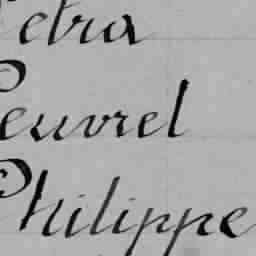 Petra
Peuvrel
Philippe